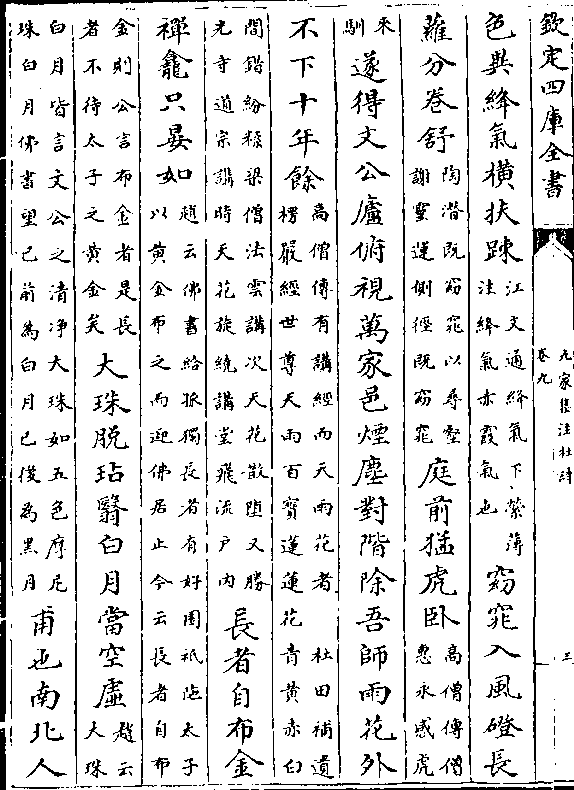 欽定四庫全書
九家集注杜詩
卷九
三
色與絳氣橫扶踈江文通絳氣下縈薄注絳氣赤霞氣也窈窕入風磴長
蘿分卷舒陶潛既窈窕以尋壑謝靈運側徑既窈窕庭前猛虎臥高僧傳僧惠永感虎
來馴遂得文公廬俯視萬家邑煙塵對階除吾師雨花外
不下十年餘高僧傳有講經而天雨花者杜田補遺楞嚴經世尊天雨百寳蓮蓮花青黄赤白
間錯紛糅梁僧法雲講次天花散墮又勝光寺道宗講時天花旋繞講堂飛流户内長者自布金
禪龕只晏如趙云佛書給孤獨長者有好園祇陁太子以黄金布之而迎佛居止今云長者自布
金則公言布金者是長者不待太子之黄金矣大珠脫玷翳白月當空虛趙云大珠
白月皆言文公之清净大珠如五色摩尼珠白月佛書望已前為白月已後為黑月甫也南北人